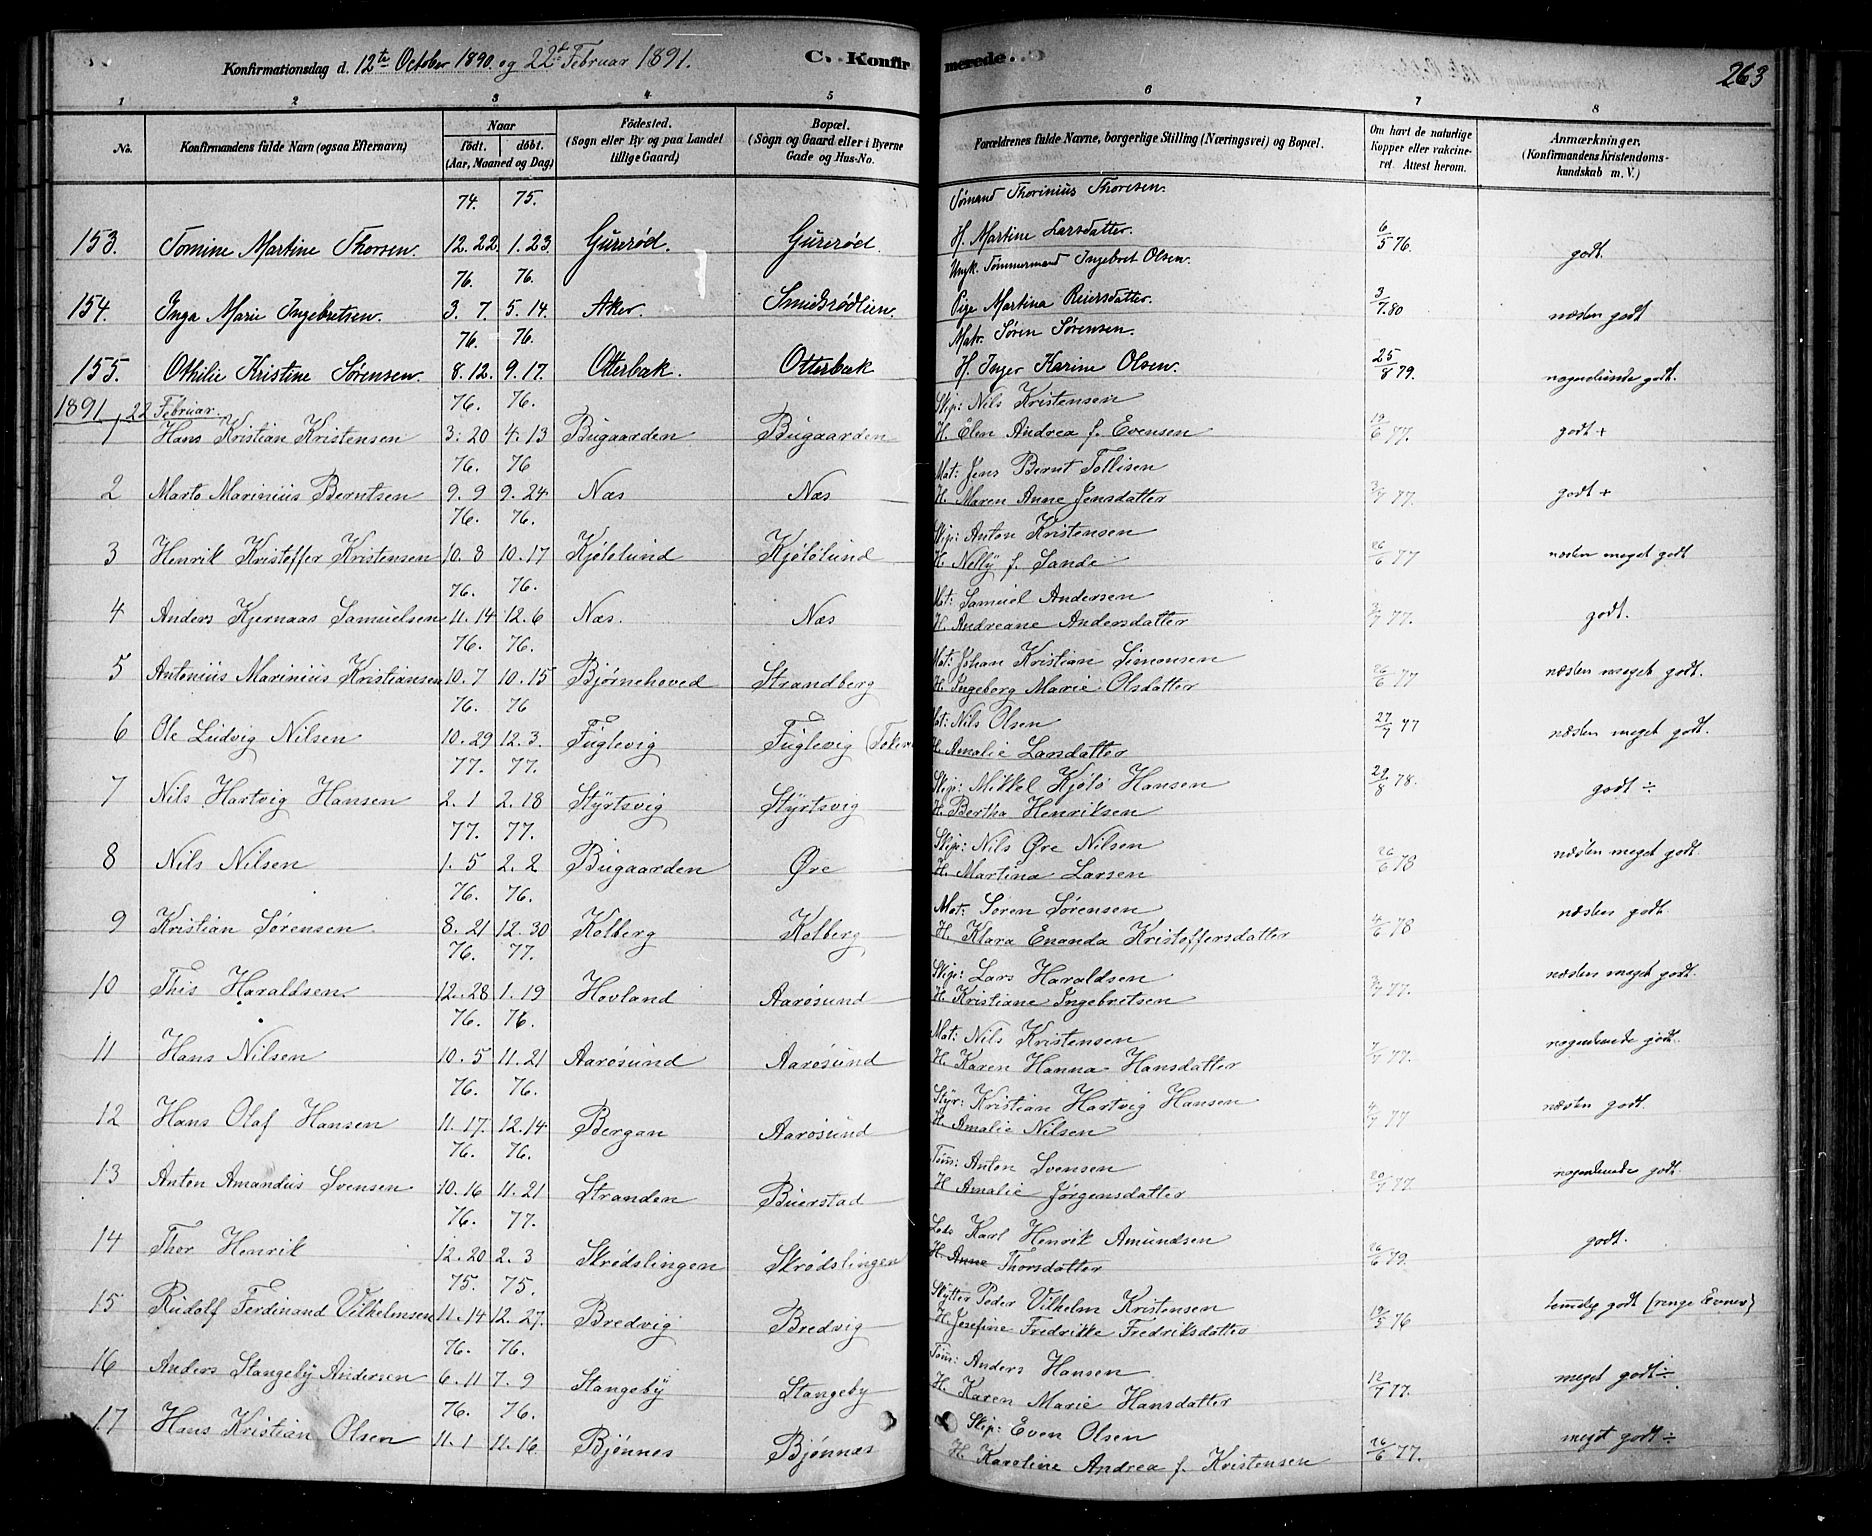 Konfirmationsdag d. 12te October 1890. og 22de Februar 1891. C. Konfirmerede. 263
1 2 3 4 5 6 7 8
No. Konfirmandens fulde Navn (ogsaa Efternavn) Naar født. døbt. (Aar, Maaned og Dag) Fødested. (Sogn eller By og paa Landet tillige Gaard) Bopæl. (Sogn og Gaard eller i Byerne Gade og Hus-No. Forældrenes fulde Navne, borgerlige Stilling (Næringsvei) og Bopæl. Om havt de naturlige Kopper eller vakcineret. Attest herom. Anmærkninger. (Konfirmandens Kristendomskundskab m. V.)
74. 75. Sømand Thorinius Thoresen.
153. Tomine Martine Thorsen. 12. 22. 1. 23. Gurerød. Gurerød. H. Martine Larsdatter. 6/5 76. godt.
76. 76. Ungk. Tømmermand Ingebret Olsen.
154. Inga Marie Ingebretsen. 3. 7. 5. 14. Aker. Smidsrødlien. Pige Martina Reiersdatter. 3/7 80 næsten godt
76. 76. Matr. Søren Sørensen.
155. Othilie Kristine Sørensen. 8. 12. 9. 17. Otterbæk. Otterbæk H. Inger Karine Olsen. 25/8 79. nogenlunde godt.
1891, 22 Februar. 76. 76. Skip: Nils Kristensen
1 Hans Kristian Kristensen 3. 20 4. 13 Bugaarden Bugaarden H. Elen Andrea f. Evensen 19/6 77. godt +
76. 76 Mat: Jens Bernt Tollisen
2 Marto Marinius Berntsen 9. 9 9. 24 Næs Næs H. Maren Anne Jensdatter 3/7 77. godt +
76. 76. Skip: Anton Kristensen
3 Henrik Kristoffer Kristensen 10. 8 10. 17 Kjølelund Kjølølund H. Nelly f. Sande 26/6 77 næsten meget godt
76. 76. Mat: Samuel Andersen
4 Anders Kjernaas Samuelsen 11. 14 12. 6 Næs. Næs H. Andreane Andersdatter 3/7 77. godt.
76. 76. Mat: Johan Kristian Simonsen
5 Antonius Marinius Kristiansen 10. 7 10. 15 Bjørnehoved Strandberg H. Ingeborg Marie Olsdatter 26/6 77 næsten meget godt.
76. 76 Mat: Nils Olsen
6 Ole Ludvig Nilsen 10. 29 12. 3. Fuglevig Fuglevig H. Amalie Larsdatter 27/7 77 næsten meget godt.
77. 77. Skip: Mikkel Kjølø Hansen
7 Nils Hartvig Hansen 2. 1 2. 18 Styrtsvig Styrtsvig H. Bertha Henriksen 29/8 78. godt ÷
77. 77. Skip: Nils Øre Nilsen
8 Nils Nilsen 1. 5 2. 2 Bugaarden Øre H. Martina Larsen 26/6 78 næsten meget godt.
76. 76. Mat: Søren Sørensen
9 Kristian Sørensen 8. 21 12. 30 Kolberg Kolberg H. Klara Enanda Kristoffersdatter 4/6 78 næsten godt.
76. 77. Skip: Lars Haraldsen
10 This Haraldsen. 12. 28 1. 19 Hovland Aarøsund H. Kristiane Ingebritsen 3/7 77. næsten meget godt.
76. 76. Mat: Nils Kristensen
11 Hans Nilsen 10. 5 11. 21 Aarøsund Aarøsund H. Karen Hanna Hansdatter 7/7 77. nogenlunde godt.
76. 76. Styr: Kristian Hartvig Hansen
12 Hans Olaf Hansen 11. 17. 12. 14 Bergan Aarøsund H. Amalie Nilsen 4/7 77 næsten godt.
76. 76. Tøm: Anton Svensen
13 Anton Amandus Svensen 10. 16 11. 21 Stranden Buerstad H. Amalie Jørgensdatter 20/7 77. nogenlunde godt.
76. 77. Lods Karl Henrik Amundsen
14 Thor Henrik 12. 20 2. 3 Skrødslingen Skrødslingen H. Anne Thorsdatter 26/6 79. godt.
75. 75. Skytter Peder Vilhelm Kristensen
15 Rudolf Ferdinand Vilhelmsen 11. 14 12. 27. Bredvig Bredvig H. Josefine Fredrikke Fredriksdatter 19/5 76 temmelig godt (ringe Evner)
76. 76. Tøm: Anders Hansen
16 Anders Stangeby Andersen 6. 11 7. 9 Stangeby Stangeby H. Karen Marie Hansdatter 12/7 77. meget godt ÷
76. 76. Skip: Even Olsen
17 Hans Kristian Olsen 11. 1 11. 16 Bjønnes Bjønnæs H. Karoline Andrea f. Kristensen 26/6 77. meget godt ÷